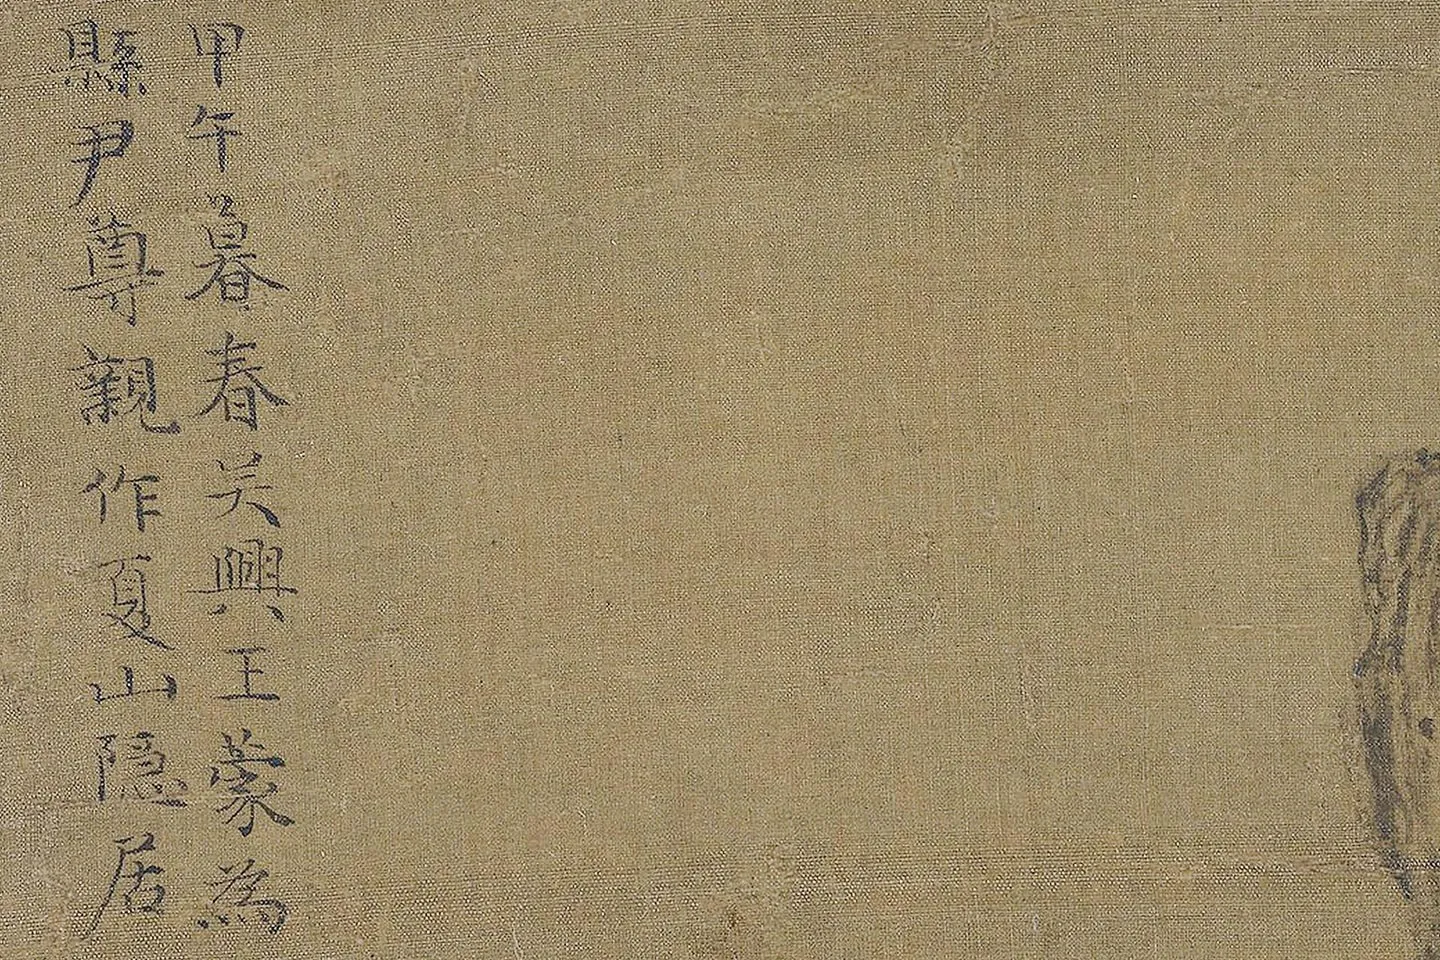 甲午暮春吴興王蒙為
縣尹尊親作夏山隱居